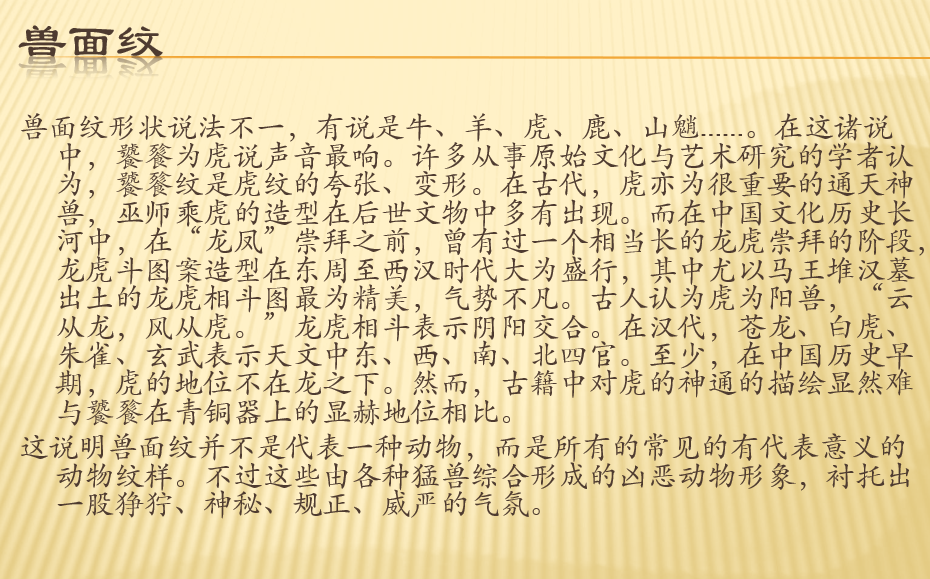 兽面纹
兽面纹形状说法不一，有说是牛、羊、虎、鹿、山魈......。在这诸说
中，饕餮为虎说声音最响。许多从事原始文化与艺术研究的学者认
为，饕餮纹是虎纹的夸张、变形。在古代，虎亦为很重要的通天神
兽，巫师乘虎的造型在后世文物中多有出现。而在中国文化历史长
河中，在“龙凤”崇拜之前，曾有过一个相当长的龙虎崇拜的阶段，
龙虎斗图案造型在东周至西汉时代大为盛行，其中尤以马王堆汉墓
出土的龙虎相斗图最为精美，气势不凡。古人认为虎为阳兽，“云
从龙，风从虎。”龙虎相斗表示阴阳交合。在汉代，苍龙、白虎、
朱雀、玄武表示天文中东、西、南、北四官。至少，在中国历史早
期，虎的地位不在龙之下。然而，古籍中对虎的神通的描绘显然难
与饕餮在青铜器上的显赫地位相比。
这说明兽面纹并不是代表一种动物，而是所有的常见的有代表意义的
动物纹样。不过这些由各种猛兽综合形成的凶恶动物形象，衬托出
一股狰狞、神秘、规正、威严的气氛。